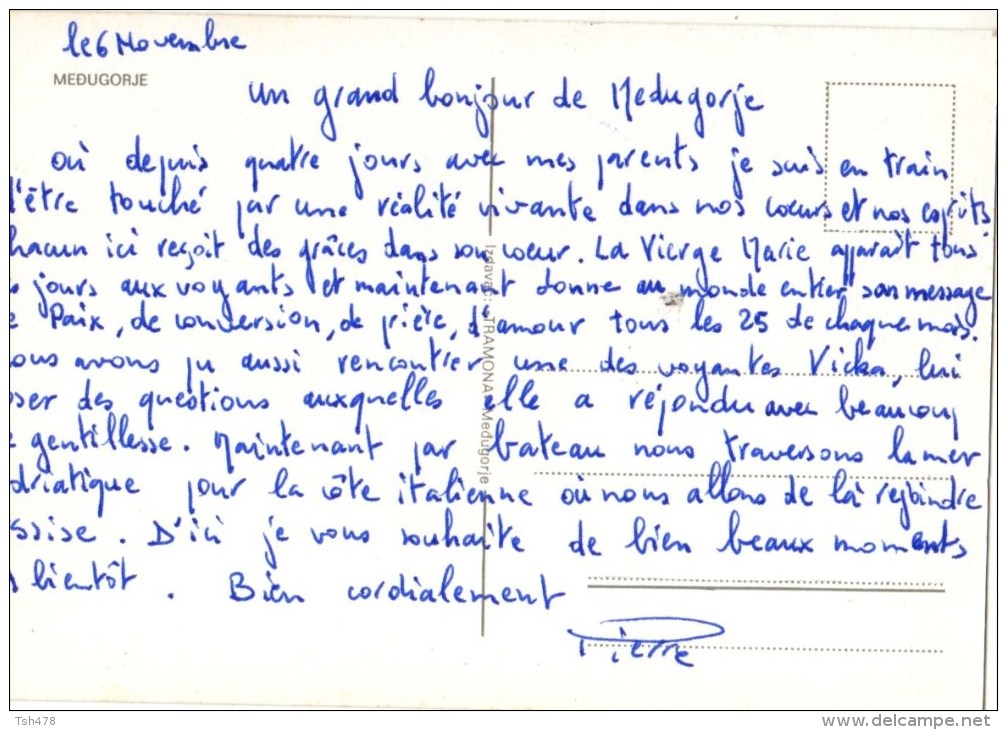 le 6 Novembre
MEĐUGORJE
Un grand bonjour de Medugorje
où depuis quatre jours avec mes parents je suis en train
d'être touché par une réalité vivante dans nos coeurs et nos esprits.
hacun ici reçoit des grâces dans son coeur. La Vierge Marie apparaît tous
s jours aux voyants et maintenant donne au monde entier son message
e Paix, de conversion, de prière, d'amour tous les 25 de chaque mois.
ous avons pu aussi rencontrer une des voyantes Vicka, lui
oser des questions auxquelles elle a répondu avec beaucoup
e gentillesse. Maintenant par bateau nous traversons la mer
driatique pour la côte italienne où nous allons de là rejoindre
ssise. D'ici je vous souhaite de bien beaux moments
bientôt. Bien cordialement
Pierre
Izdavač: TRAMONA Međugorje
Tsh478
www.delcampe.net